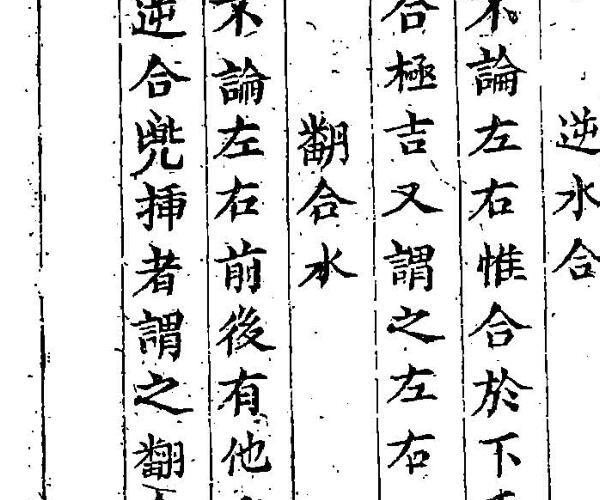 逆水合
不論左右惟合於下
合極吉又謂之左右
翻合水
不論左右前後有他
逆合兜揷者謂之翻